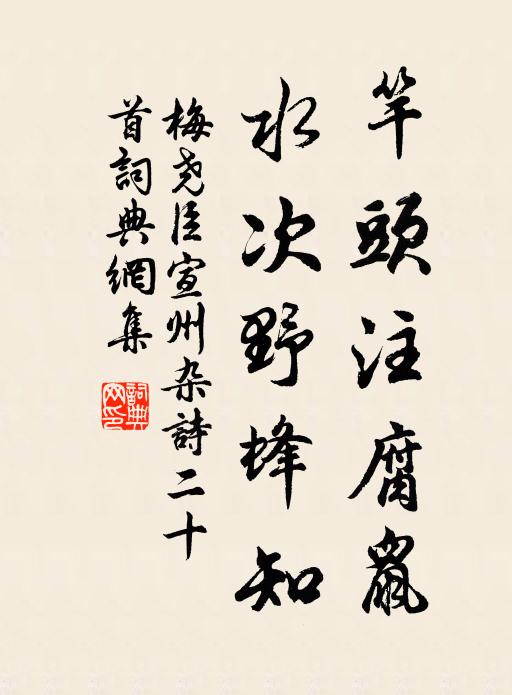 竿頭注腐鼠
水次野蜂知
梅尧臣宣州杂詩二十
首詞典網集
詞典网印